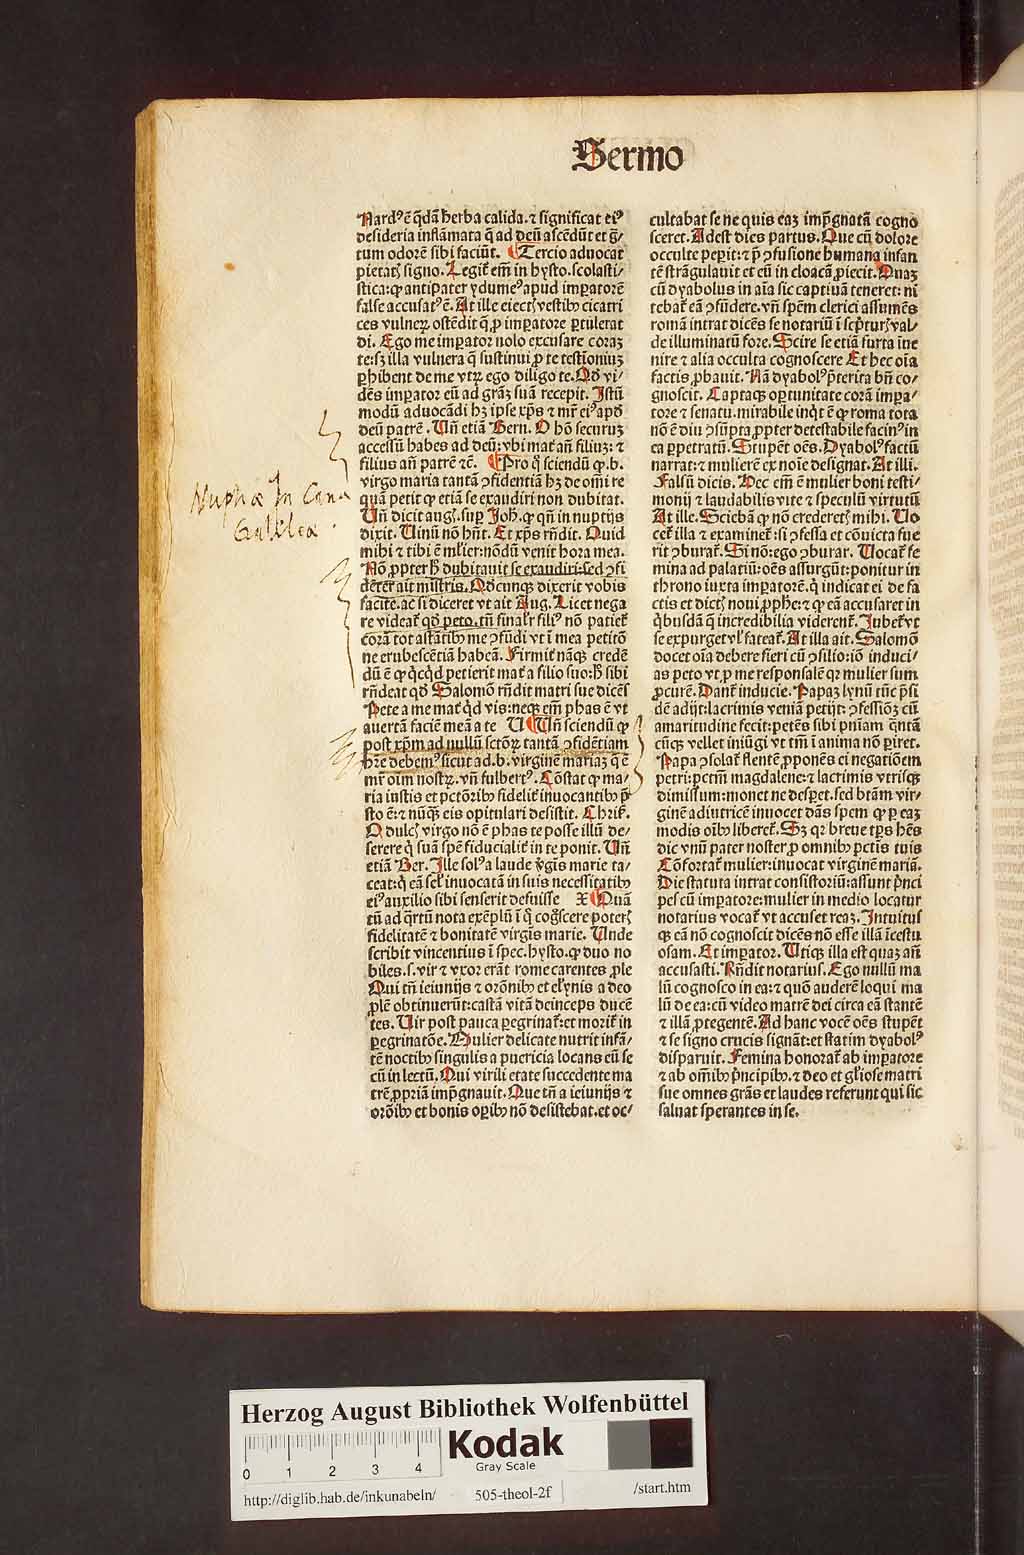 Sermo
Nardꝰ ē q̄dā herba calida. ⁊ significat eiꝰ
desideria inflāmata q̄ ad deū ascēdūt et g̃/
tum odorē sibi faciūt. Tercio aduocat
pietatꝭ signo. Legit᷑ em̄ in hysto. scolasti/
stica: ꝙ antipater ydumeꝰ apud imꝑatorē
false accusatꝰ ē. At ille eiectꝭ vestibꝰ cicatri
ces vulneꝝ ostēdit q̄ ꝓ imꝑatore ꝑtulerat
di. Ego me imꝑator nolo excusare coraꝫ
te: sꝫ illa vulnera q̄ sustinui ꝓ te testīoniuꝫ
ꝑhibent de me vtꝝ ego diligo te. Qd̓ vi/
dēs imꝑator eū ad gr̄aꝫ suā recepit. Istū
modū aduocādi hꝫ ipse xp̄s ⁊ mr̄ eiꝰ apd̓
deū patrē. Un̄ etiā Bern. O hō securuꝫ
accessū habes ad deū: vbi mat᷑ an̄ filiuꝫ: ⁊
filius an̄ patrē ⁊c̄. Pro q̊ sciendū ꝙ .b.
virgo maria tantā ꝯfidentiā hꝫ de om̄i re
quā petit ꝙ etiā se exaudiri non dubitat.
Un̄ dicit augꝭ. suꝑ Joh̄. ꝙ qn̄ in nuptijs
dixit. Uinū nō hn̄t. Et xp̄s rn̄dit. Quid
mihi ⁊ tibi ē ml̓ier: nōdū venit hora mea.
Nō ꝓpter h̓ dubitauit se exaudiri: sed ꝯfi
dēter ait mīstris. Qd̓cunqꝫ dixerit vobis
facite. ac si diceret vt ait Aug. Licet nega
re videat᷑ qd̓ peto. tn̄ sinal̓r filiꝰ nō patiet᷑
corā tot astātibꝰ me ꝯfūdi vt ī mea petitō
ne erubescētiā habeā. Firmit᷑ nāqꝫ credē
dū ē ꝙ q̇cq̇d petierit mat᷑ a filio suo: h̓ sibi
rn̄deat qd̓ Salomō rn̄dit matri sue dicēs
Pete a me mat᷑ q̇d vis: neqꝫ em̄ phas ē vt
auertā faciē meā a te U Un̄ sciendū ꝙ
post xp̄m ad nullū sctōꝝ tantā ꝯfidētiam
hr̄e debemꝰ sicut ad .b. virginē mariaꝫ q̄ ē
mr̄ oīm nostꝝ. vn̄ fulbertꝰ. Cōstat ꝙ ma/
ria iustis et pctōribꝰ fidelit᷑ inuocantibꝰ p̄
sto ē: ⁊ nūqꝫ eis opitulari desistit. Chrīs.
O dulcꝭ virgo nō ē phas te posse illū de/
serere q̇ suā spē fiducialit᷑ in te ponit. Un̄
etiā Ber. Ille solꝰ a laude v̓gīs marie ta/
ceat: q̇ eā sel̓ inuocatā in suis necessitatibꝰ
eiꝰ auxilio sibi senserit defuisse X Quā
tū ad q̄rtū nota exēplū ī q̊ cog̊scere poterꝭ
fidelitatē ⁊ bonitatē virgīs marie. Unde
scribit vincentius ī spec. hysto. ꝙ duo no
biles .s. vir ⁊ vxor erāt rome carentes ꝓle
Qui tn̄ ieiunijs ⁊ orōnibꝰ et elynis a deo
ꝓlē obtinuerūt: castā vitā deinceps ducē
tes. Uir post pauca ꝑegrinat᷑: et morit᷑ in
ꝑegrinatōe. Mulier delicate nutrit infā/
tē noctibꝰ singulis a puericia locans eū se
cū in lectū. Qui virili etate succedente ma
trē ꝓpriā imp̄gnauit. Que tn̄ a ieiunijs ⁊
orōnibꝰ et bonis oꝑibꝰ nō desistebat. et oc/
cultabat se ne quis eaꝫ imp̄gnatā cogno
sceret. Adest dies partus. Que cū dolore
occulte peꝑit: ⁊ p̄ ꝯfusione humana infan
tē strāgulauit et eū in cloacā ꝓiecit. Quaꝫ
cū dyabolus in aīa sic captiuā teneret: ni
tebat᷑ eā ꝯfūdere. vn̄ spēm clerici assumēs
romā intrat dicēs se notariū ī scpturꝭ val/
de illuminatū fore. Scire se etiā furta īue
nire ⁊ alia occulta cognoscere Et hec oīa
factis ꝓbauit. Nā dyabolꝰ p̄terita bn̄ co/
gnoscit. Captaqꝫ oꝑtunitate corā imꝑa/
tore ⁊ senatu. mirabile inq̇t ē ꝙ roma tota
nō ē diu ꝯsūpta ꝓpter detestabile facinꝰ in
ea ꝑpetratū. Stupēt oēs. Dyabolꝰ factū
narrat: ⁊ mulierē ex noīe designat. At illi.
Falsū dicis. Hec em̄ ē mulier boni testi/
monij ⁊ laudabilis vite ⁊ speculū virtutū
At ille. Sciebā ꝙ nō crederetꝭ mihi. Uo
cet᷑ illa ⁊ examinet᷑: si ꝯfessa et cōuicta fue
rit ꝯburat᷑. Si nō: ego ꝯburar. Uocat᷑ fe
mina ad palatiū: oēs assurgūt: ponitur in
throno iuxta imꝑatorē. q̇ indicat ei de fa
ctis et dictꝭ noui ꝓph̓e: ⁊ ꝙ eā accusaret in
q̇busdā q̄ incredibilia viderent᷑. Jubet᷑ vt
se expurget vl̓ fateat᷑. At illa ait. Salomō
docet oīa debere fieri cū ꝯsilio: iō induci/
as peto vt ꝓ me responsalē qr̄ mulier sum
ꝓcurē. Dant᷑ inducie. Papaꝫ lynū tūc p̄si
dē adijt: lacrimis veniā petijt: ꝯfessiōꝫ cū
amaritudine fecit: petēs sibi pn̄iam q̄ntā
cūqꝫ vellet iniūgi vt tm̄ ī anima nō ꝑiret.
Papa ꝯsolat᷑ flentē ꝓponēs ei negatiōem
petri: pctm̄ magdalene: ⁊ lacrimis vtrisqꝫ
dimissum: monet ne desꝑet. sed btām vir/
ginē adiutricē inuocet dās spem ꝙ ꝑ eaꝫ
modis oībꝰ liberet᷑. Sꝫ qr̄ breue tp̄s hn̄s
dic vnū pater noster ꝓ omnibꝰ pctīs tuis
Cōfortat᷑ mulier: inuocat virginē mariā.
Die statuta intrat consistoriū: assunt p̓nci
pes cū imꝑatore: mulier in medio locatur
notarius vocat᷑ vt accuset reaꝫ. Intuitus
qꝫ eā nō cognoscit dicēs nō esse illā īcestu
osam. Et imꝑator. Utiqꝫ illa est quaꝫ an̄
accusasti. Rn̄dit notarius. Ego nullū ma
lū cognosco in ea: ⁊ quō auderē loqui ma
lū de ea: cū video matrē dei circa eā stantē
⁊ illā ꝓtegentē. Ad hanc vocē oēs stupēt
⁊ se signo crucis signāt: et statim dyabolꝰ
disparuit. Femina honorat᷑ ab imꝑatore
⁊ ab om̄ibꝰ p̓ncipibꝰ. ⁊ deo et gl̓iose matri
sue omnes gr̄as et laudes referunt qui sic
saluat sperantes in se.
Nuptiæ In Cana
Galilea.
Herzog August Bibliothek Wolfenbüttel
Kodak
Gray Scale
0 1 2 3 4
http://diglib.hab.de/inkunabeln/ 505-theol-2f /start.htm